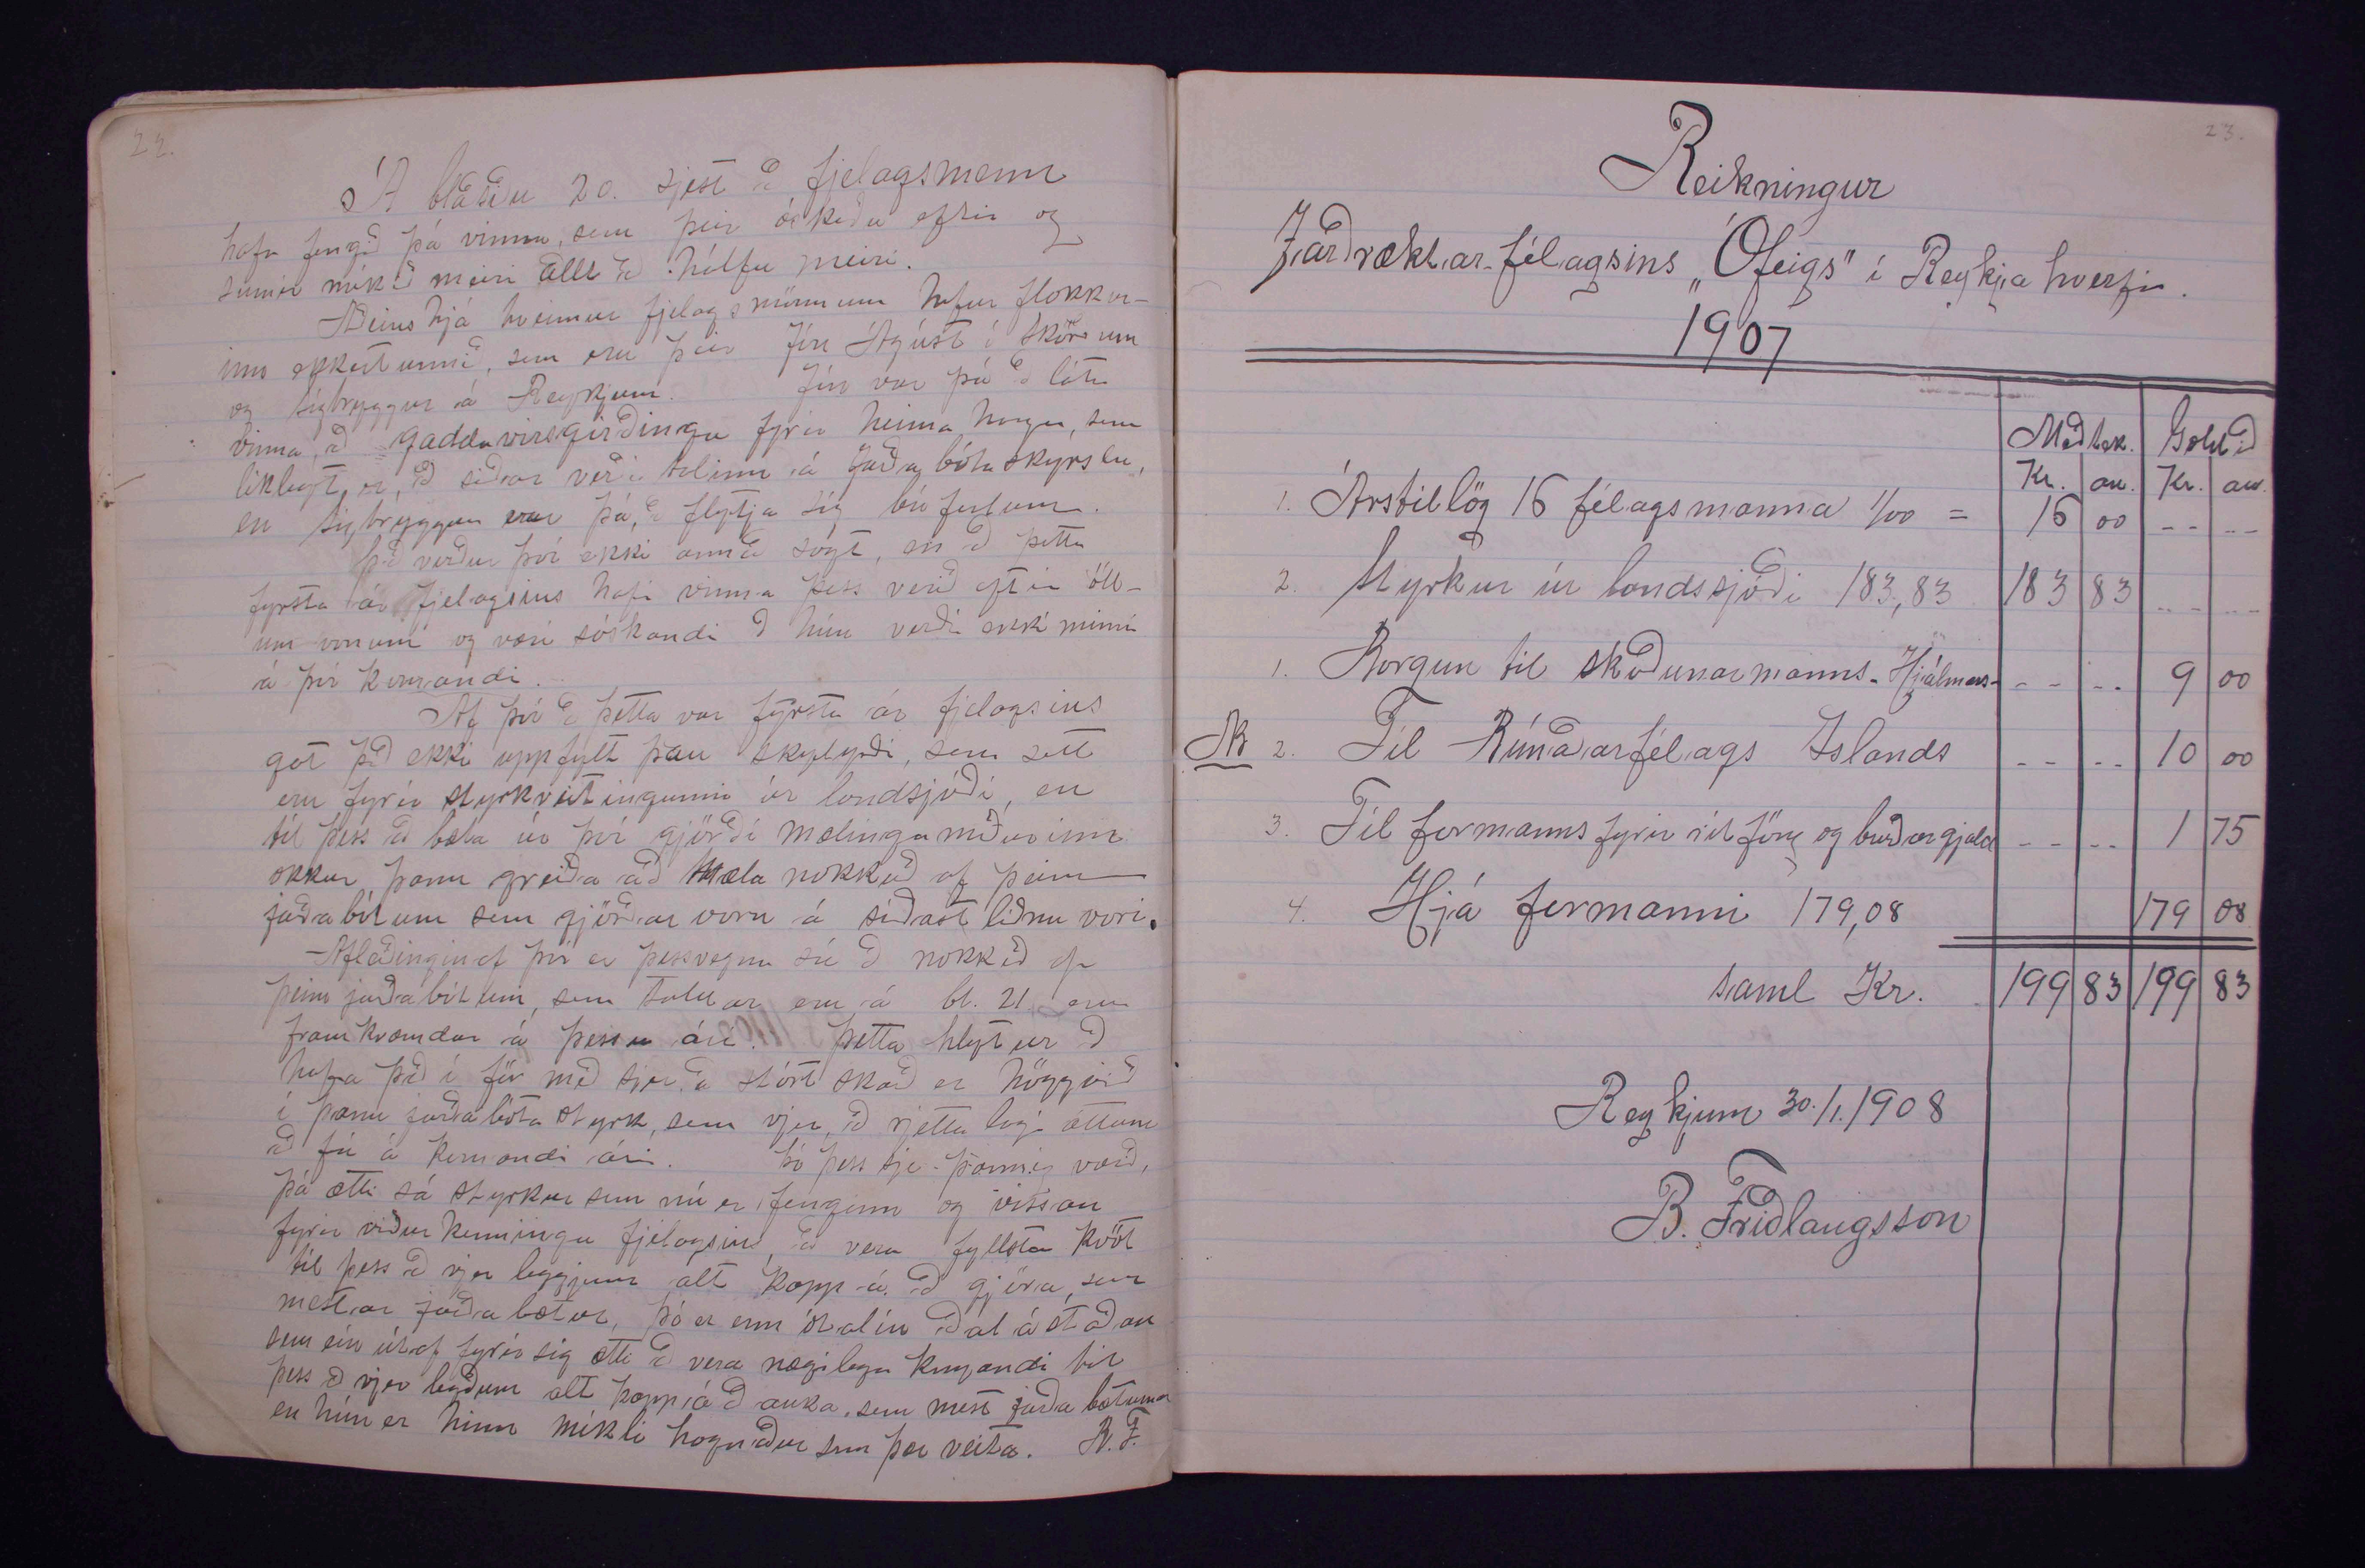 22.
Á blaðsíðu 20. sjest að fjelagsmenn
hafa fengið þá vinnu, sem þeir óskuðu eftir og
sumir mikið meiri allt að hálfu meiri.
Aðeins hjá tveimur fjelagsmönnum hefur flokkur-
inn ekkert unnið, sem eru þeir Jón Ágúst í Skörðum
og Sigtryggur á Reykjum. Jón var þá að láta
vinna að gaddavírsgirðingu fyrir heima haga, sem
líklegt er, að síðar verði talinn á jarðabótaskyrslu,
en Sigtryggur var þá að flytja sig búferlum.
Það verður því ekki annað sagt, en að þetta
fyrsta ár fjelagsins hafi vinna þess verið eftir öll-
um vonum og væri óskandi að hún verði ekki minni
á því komandi.
Af því að þetta var fyrsta ár fjelagsins
gat það ekki uppfylt þau skylyrði, sem sett
eru fyrir styrkveitingunni úr landsjóði, en
til þess að bæta úr því gjörði mælingamaðurinn
okkur þann greiða að mæla nokkuð af þeim
jarðabótum sem gjörðar voru á síðast liðnu vori.
Afleiðingin af því er þessvegna sú að nokkuð af
þeim jarðabótum, sem taldar eru á bl. 21 eru
framkvæmdar á þessu ári. Þetta hlytur að
hafa það í för með sjer, að stórt skarð er höggvið
í þann jarðabóta styrk, sem vjer, að rjettu lagi ættum
að fá á komandi ári. Þó þess sje þannig varið,
þá ætti sá styrkur sem nú er fenginn og vissan
fyrir viðurkenningu fjelagsins, að vera fyllsta hvöt
til þess að vjer leggjum alt kapp á að gjöra, sem
mestar jarðabætur, þó er enn ótalin aðal ástæðan
sem ein útaf fyrir sig ætti að vera nægilega knyjandi til
þess að vjer legðum alt kapp á að auka, sem mest jarðabæturnar
en hún er hinn mikli hagnaður sem þær veita. B. F.
23.
Reikningur
Jarðræktar-félagsins "Ófeigs" í Reykjahverfi.
1907
Meðtek. Goldið
Kr. au. Kr. au.
1. Árstillög 16 félagsmanna 1/00 = 16 00 -- --
2. Styrkur úr landssjóði 183,83 183 83 -- --
1. Borgun til skoðunarmanns - Hjálmars - -- -- 9 00
NB 2. Til Búnaðarfélags Íslands -- -- 10 00
3. Til formanns fyrir ritföng og burðargjald -- -- 1 75
4. Hjá formanni 179,08 179 08
Saml Kr. 199 83 199 83
Reykjum 30./1. 1908
B. Friðlaugsson